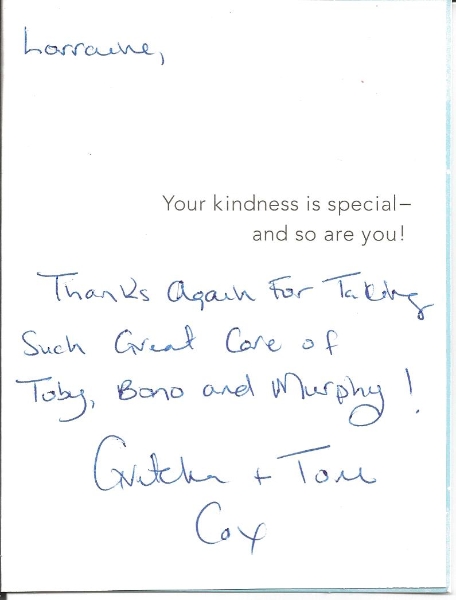 Lorraine,
Your kindness is special–
and so are you!
Thanks Again For Taking
Such Great Care of
Toby, Bono and Murphy!
Gretchen + Tom
Cox